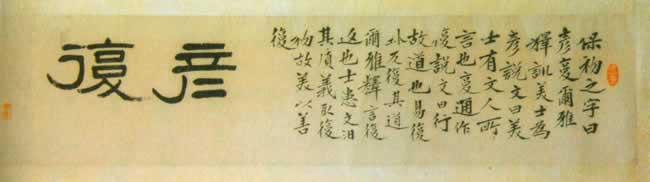 保初之字曰
彥复爾雅
釋訓美士為
彥說文曰美
士有文人所
言也复通作
復說文曰行
故道也易復
卦反復其道
爾雅釋言復
返也士患文汩
其質義取復
初故美以善
復
彥復